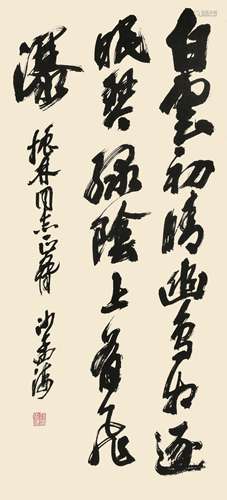 白雲初晴幽鳥相逐
眠琴綠陰上有飛
瀑
振林同志正腕
沙孟海